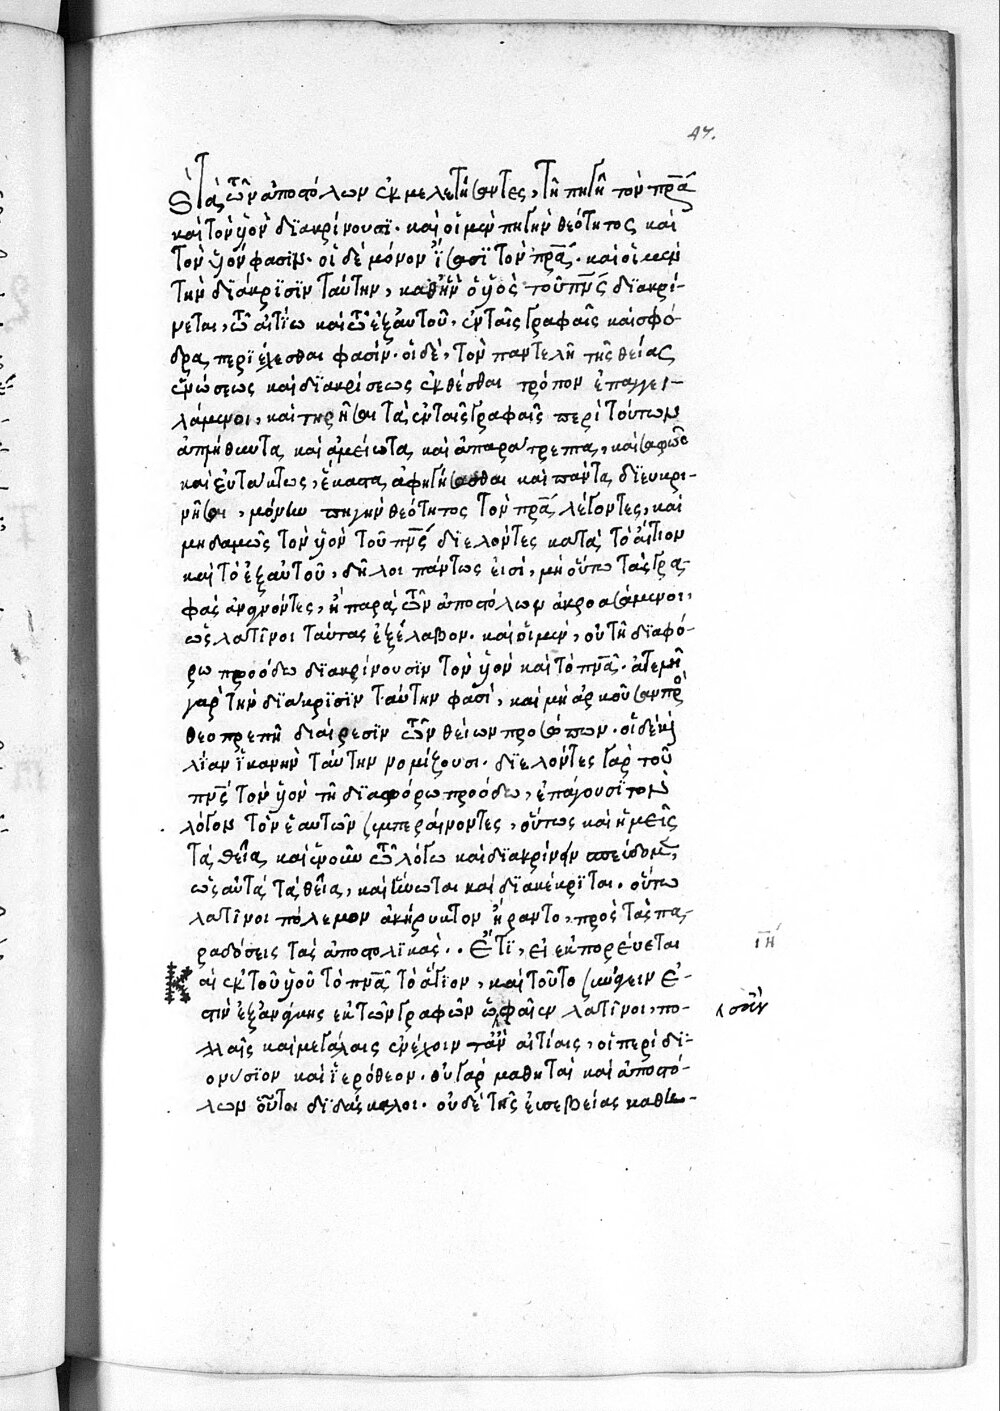 47.
τὰ τῶν ἀποστόλων ἐκμελετήσαντες, τῇ πηγῇ τὸν πρᾶ
καὶ τὸν ὑὸν διακρίνουσι. καὶ οἱ μὲν πηγὴν θεότητος καὶ
τὸν ὑόν φασιν. οἱ δὲ μόνον ἴσασι τὸν πρᾶ. καὶ οἱ μὲν
τὴν διάκρισιν ταύτην, καθ' ἣν ὁ ὑὸς τοῦ πνς διακρί-
νεται, τῶ αἰτίω καὶ τῶ ἐξ αὐτοῦ, ἐν ταῖς γραφαῖς καὶ σφό-
δρα περιέχεσθαι φασίν. οἱ δὲ, τὸν παντελῆ τῆς θείας
ἑνώσεως καὶ διακρίσεως ἐκθέσθαι τρόπον ἐπαγγει-
λάμενοι, καὶ τηρῆσαι τὰ ἐν ταῖς γραφαῖς περὶ τούτων
ἀπλήθυντα καὶ ἀμείωτα καὶ ἀπαράτρεπτα, καὶ σαφῶς
καὶ εὐτάκτως, ἕκαστα ἀφηγήσασθαι καὶ πάντα διευκρι-
νῆσαι, μόνην πηγὴν θεότητος τὸν πρᾶ λέγοντες, καὶ
μηδαμῶς τὸν ὑὸν τοῦ πνς διελόντες κατὰ τὸ αἴτιον
καὶ τὸ ἐξ αὐτοῦ, δῆλοι πάντως εἰσὶ, μὴ οὕτω τὰς γρα-
φὰς ἀναγνόντες, ἢ παρὰ τῶν ἀποστόλων ἀκροασάμενοι,
ὡς λατῖνοι ταύτας ἐξέλαβον. καὶ οἱ μὲν, οὐ τῇ διαφό-
ρω προόδω διακρίνουσιν τὸν ὑὸν καὶ τὸ πνᾶ. ἀτελῆ
γὰρ τὴν διάκρισιν ταύτην φασὶ, καὶ μὴ ἀρκοῦσαν πρὸς
θεοπρεπῆ διαίρεσιν τῶν θείων προσώπων. οἱ δὲ καὶ
λίαν ἱκανὴν ταύτην νομίζουσι. διελόντες γὰρ τοῦ
πνς τὸν ὑὸν τῇ διαφόρω προόδω, ἐπάγουσι τὸν
λόγον τὸν ἑαυτῶν συμπεραίνοντες, οὕτως καὶ ἡμεῖς
τὰ θεῖα καὶ ἑνοῦν τῶ λόγω καὶ διακρίνειν σπεύδομεν,
ὡς αὐτὰ τὰ θεῖα, καὶ ἥνωται καὶ διακέκριται. οὕτω
λατῖνοι πόλεμον ἀκήρυκτον ἤραντο, πρὸς τὰς πα-
ραδόσεις τὰς ἀποστολικὰς.. Ἔτι, εἰ ἐκπορέυεται
καὶ ἐκ τοῦ ὑοῦ τὸ πνᾶ τὸ ἅγιον, καὶ τοῦτο συνάγειν ἐ-
στὶν ἐξ ἀνάγκης ἐκ τῶν γραφῶν ὥς φασιν λατῖνοι, πο-
λλαῖς καὶ μεγάλαις ἐνέχοιντ' ἂν αἰτίαις, οἱ περὶ δι-
ονύσιον καὶ ἱερόθεον. οὐ γὰρ μαθηταὶ καὶ ἀποστό-
λων οὗτοι διδάσκαλοι. οὐδὲ τῆς εὐσεβείας καθη-